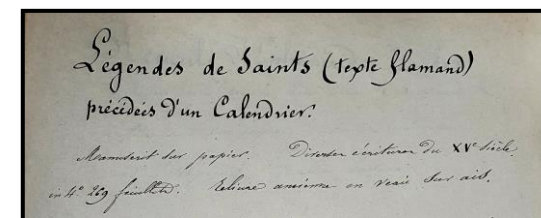 Légendes de Saints (texte flamand)
précédées d'un Calendrier.
Manuscrit sur papier. Diverses écritures du XVe siècle.
in 4º 269 feuillets. reliure ancienne en veau sur ais.